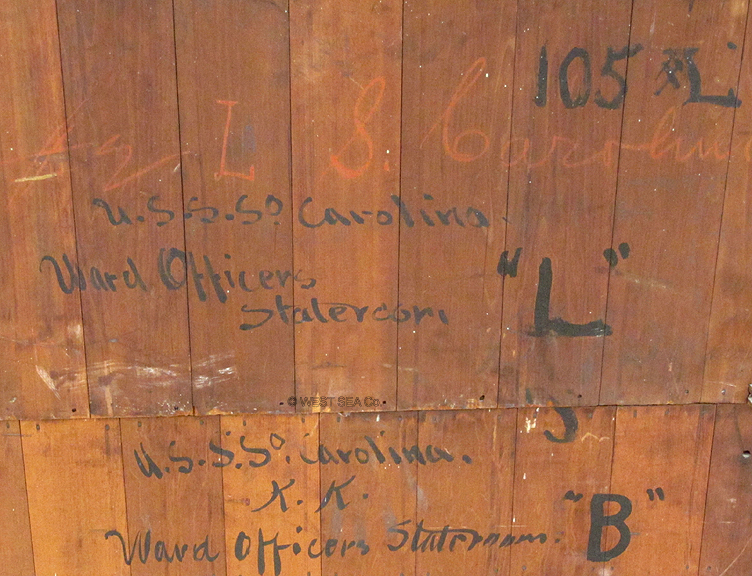 105 L
L S. Carolina
U.S.S. So Carolina.
Ward Officers "L"
Stateroom
© WEST SEA Co.
U.S.S. So. Carolina.
K. K.
Ward Officers Stateroom. "B"